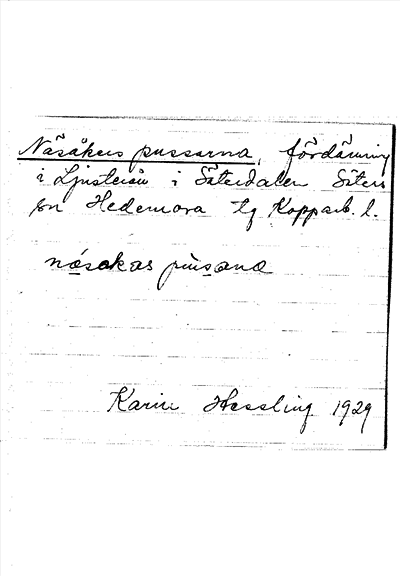 Näsåkers pussarna, fördämning
i Ljusterån i Säterdalen Säters
sn Hedemora tg Kopparb. l.
näsakas pusana
Karin Hessling 1929